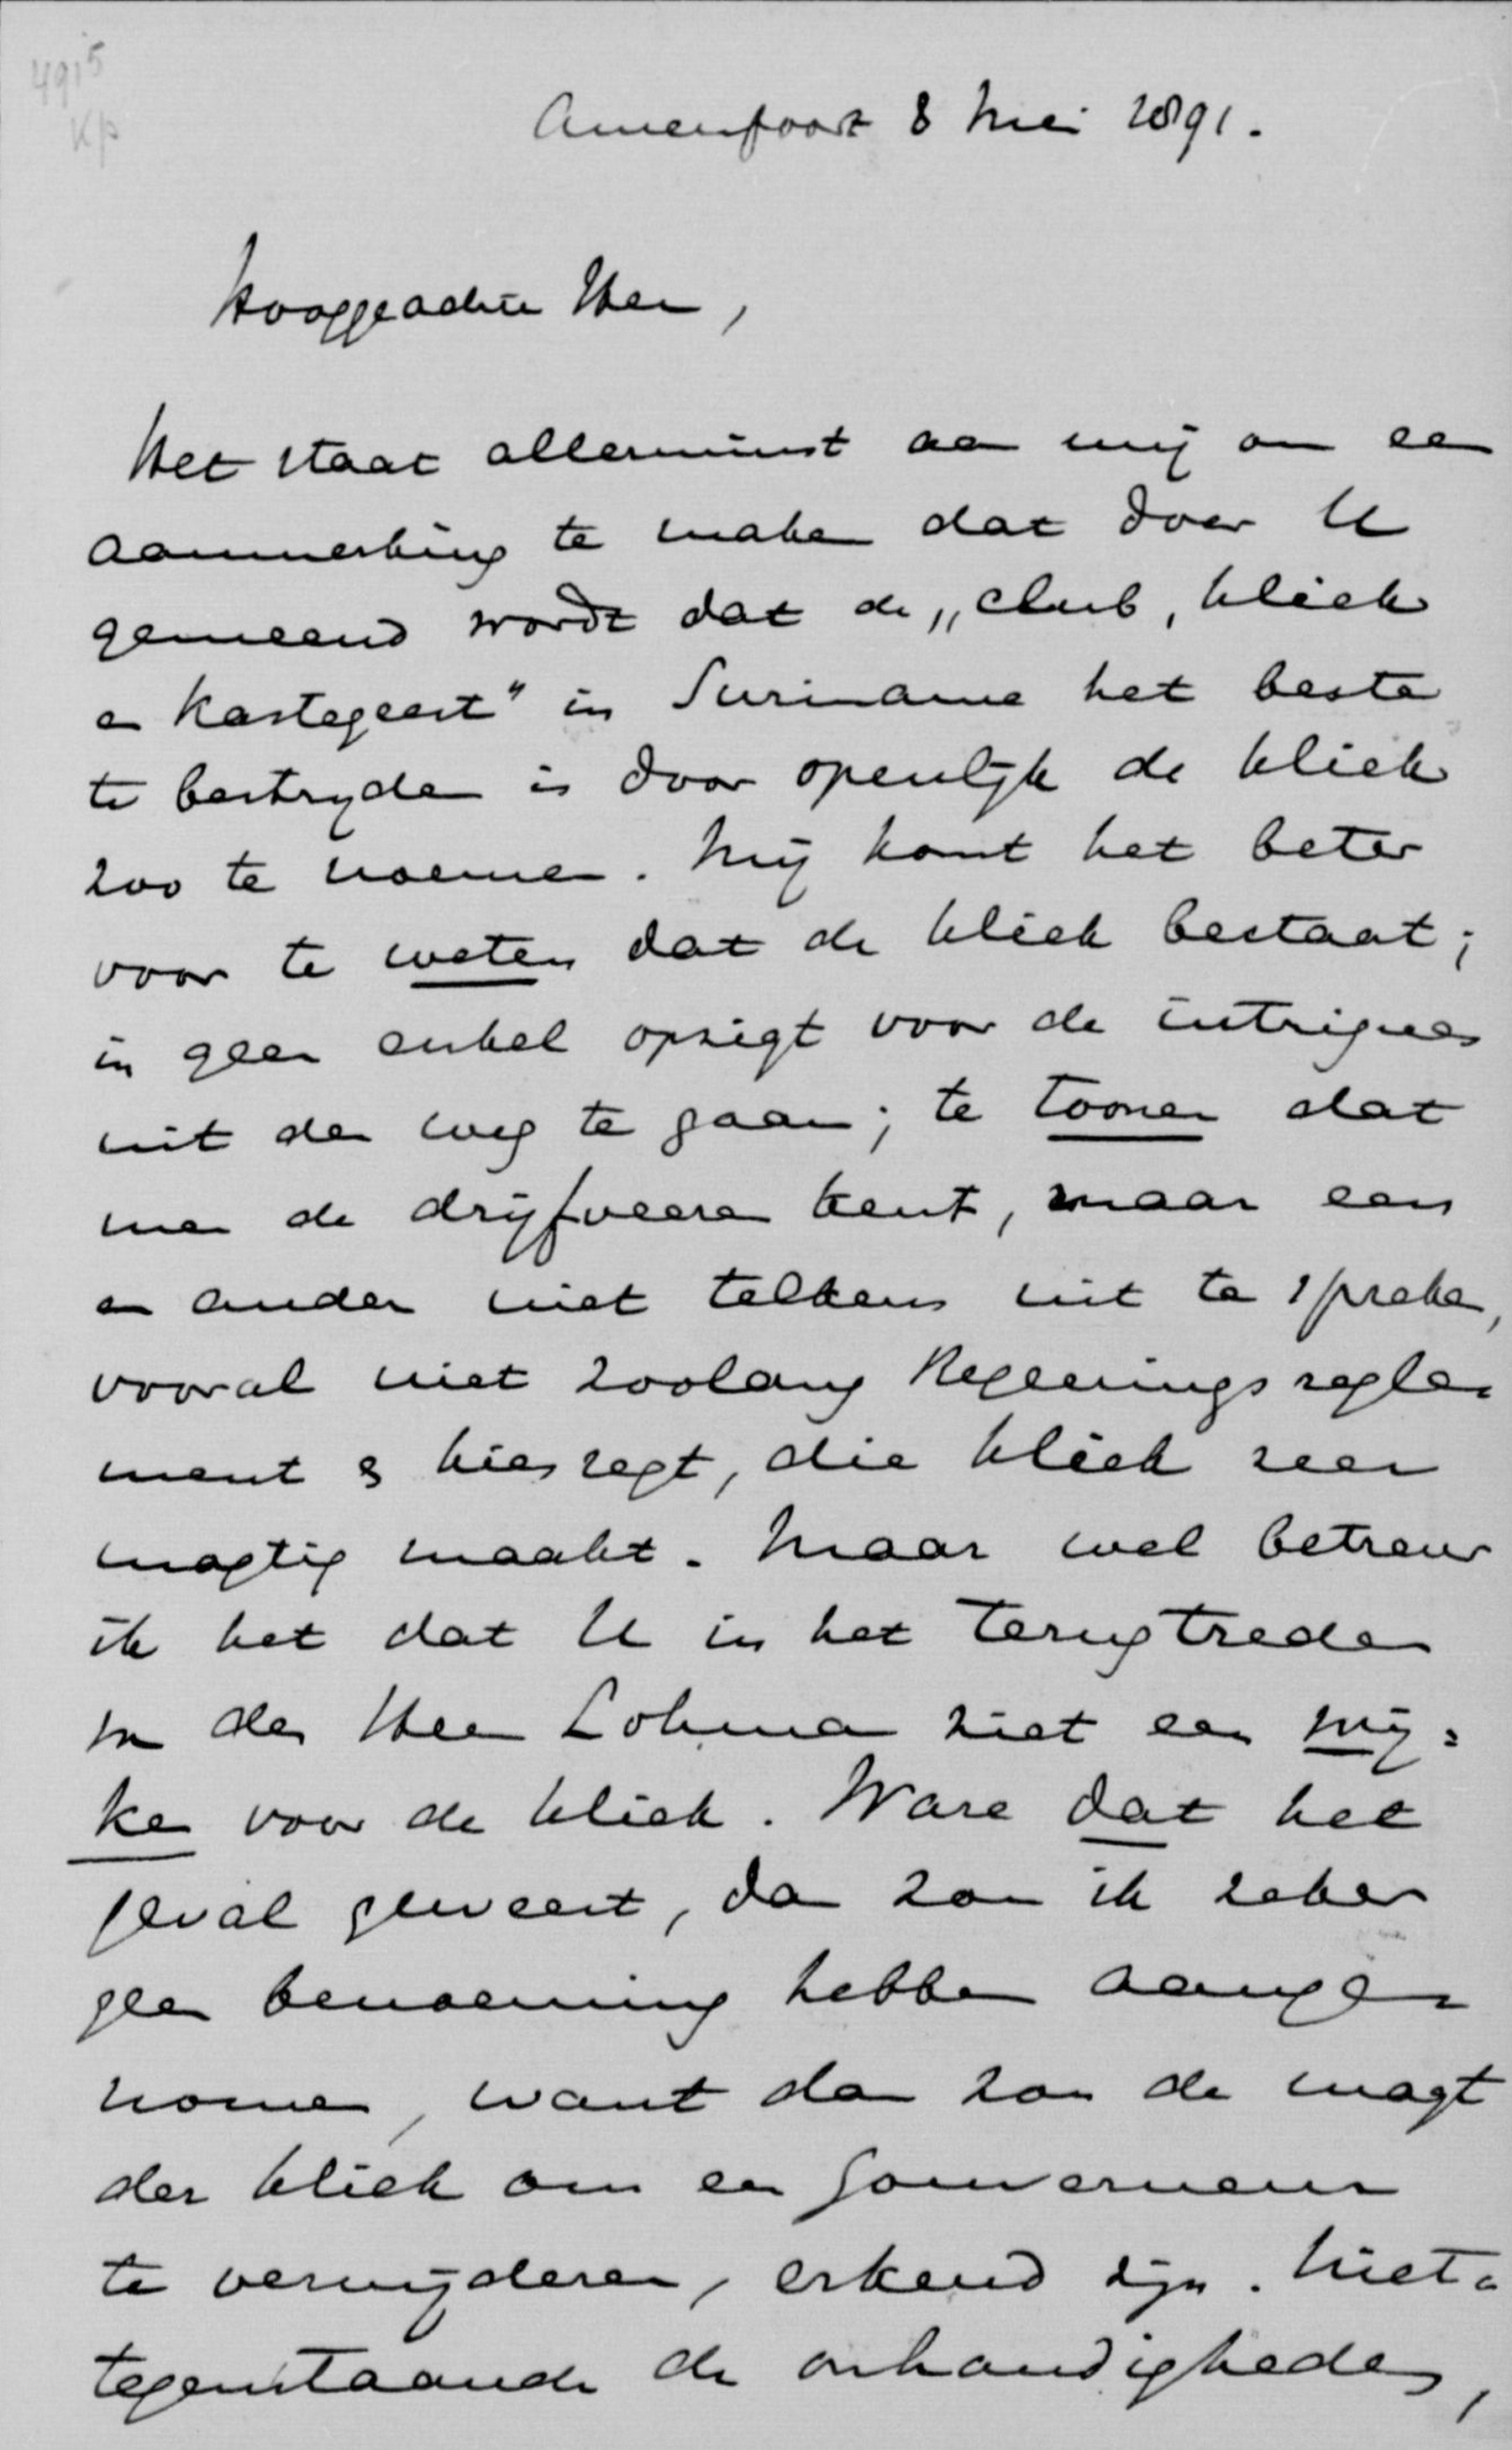 4915
Kp
Amersfoort 8 Mei 1891.
Hooggeachte Heer,
Het staat allerminst aan mij om een
aanmerking te maken dat door U
gemeend wordt dat de „club, kliek
en kastegeest" in Suriname het beste
te bestryden is door openlijk de kliek
zoo te noemen. Mij komt het beter
voor te weten dat de kliek bestaat;
in geen enkel opzigt voor de intrigues
uit den weg te gaan; te toonen dat
men de drijfveeren kent, maar een
en ander niet telkens uit te spreken,
vooral niet zoolang Regeeringsregle=
ment & kiesregt, die kliek zeer
magtig maakt. Maar wel betreur
ik het dat U in het terugtreden
van den Heer Lohman ziet een wij=
ken voor de kliek. Ware dat het
geval geweest, dan zou ik zeker
geen benoeming hebben aange=
nomen, want dan zou de magt
der kliek om een Gouverneur
te verwijderen, erkend zijn. Niet=
tegenstaande de onhandigheden,